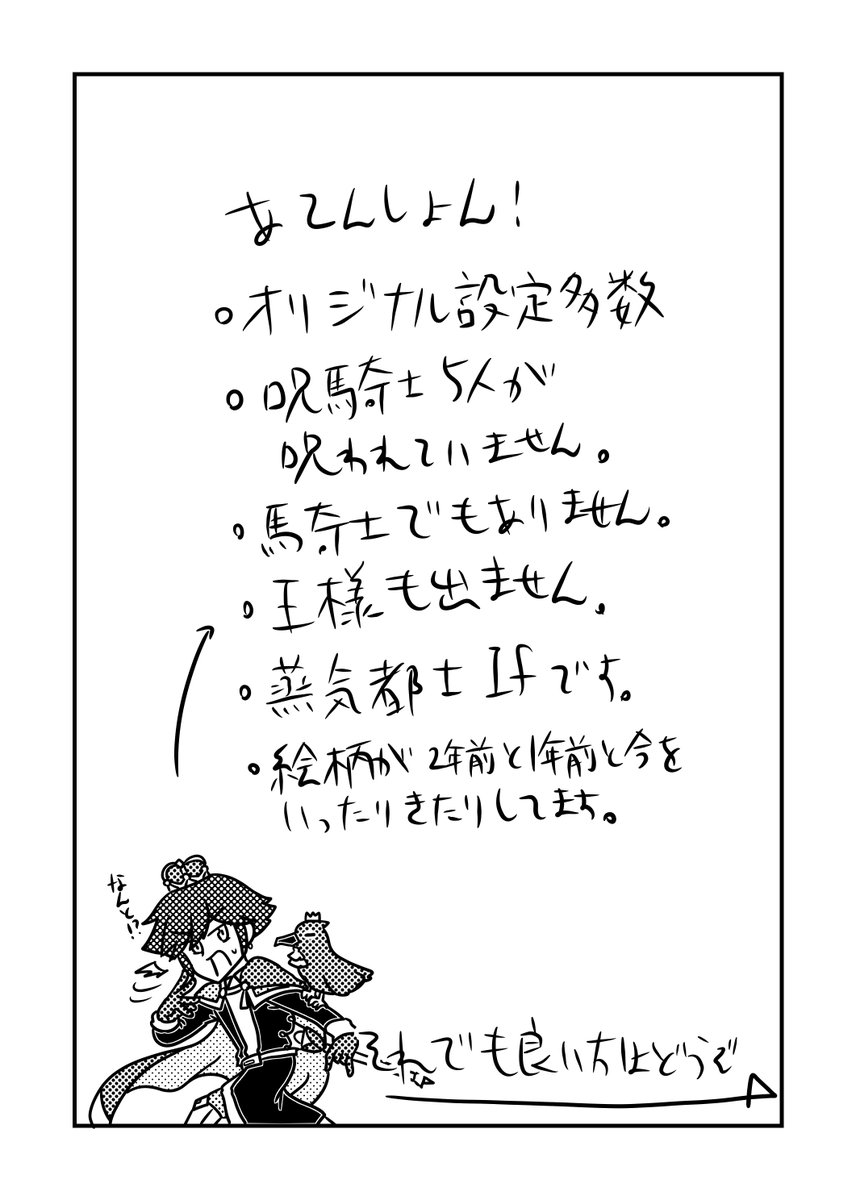 あてんしょん!
。オリジナル設定多数
。呪騎士5人が
呪われていません。
。騎士でもありません。
。王様も出ません。
。蒸気都士Ifです。
。絵柄が2年前と1年前と今を
いったりきたりしてます。
なんと!?
それでも良い方はどうぞ